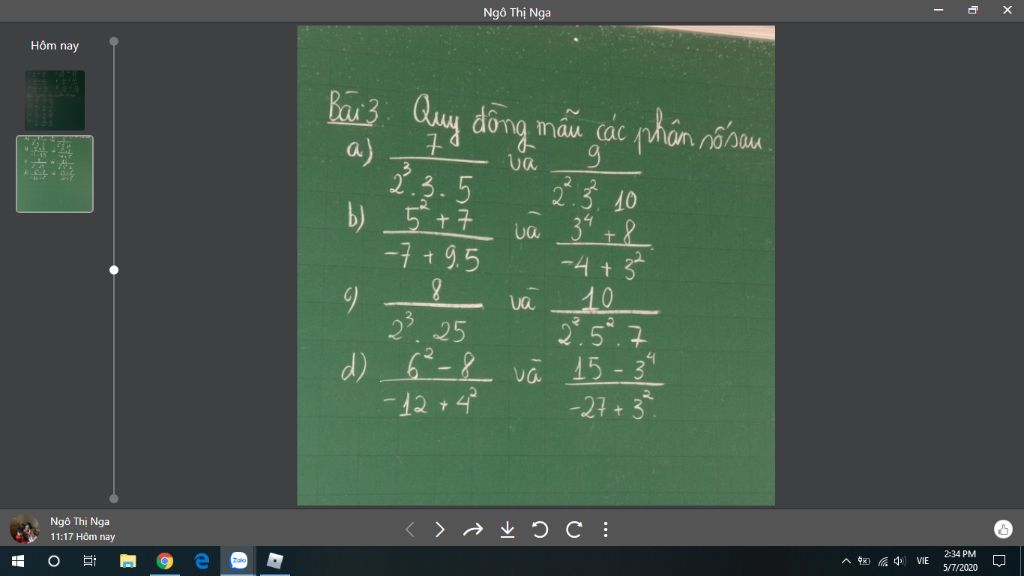 Ngô Thị Nga
Hôm nay
Bài 3: Quy đồng mẫu các phân số sau.
a) 7/(2³.3.5) và 9/(2².3².10)
b) (5²+7)/(-7+9.5) và (3⁴+8)/(-4+3²)
c) 8/(2³.25) và 10/(2².5².7)
d) (6²-8)/(-12+4²) và (15-3⁴)/(-27+3²)
Ngô Thị Nga
11:17 Hôm nay
Zalo
VIE
2:34 PM
5/7/2020